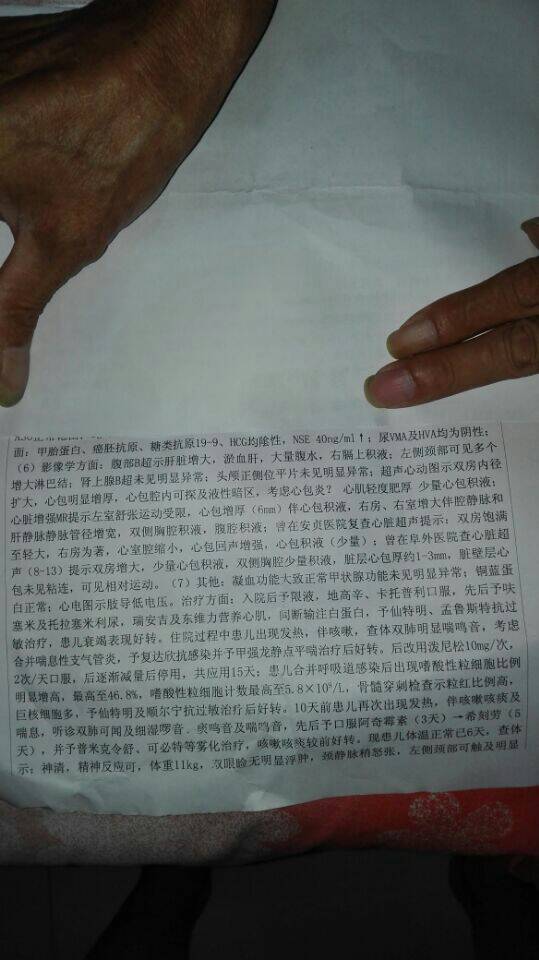 面：甲胎蛋白、癌胚抗原、糖类抗原19-9、HCG均阴性，NSE 40ng/ml↑；尿VMA及HVA均为阴性；
（6）影像学方面：腹部B超示肝脏增大，淤血肝，大量腹水，右膈上积液；左侧颈部可见多个
增大淋巴结；肾上腺B超未见明显异常；头颅正侧位平片未见明显异常；超声心动图示双房内径
扩大，心包明显增厚，心包腔内可探及液性暗区，考虑心包炎？ 心肌轻度肥厚 少量心包积液；
心脏增强MR提示左室舒张运动受限，心包增厚（6mm）伴心包积液，右房、右室增大伴腔静脉和
肝静脉静脉管径增宽，双侧胸腔积液，腹腔积液；曾在安贞医院复查心脏超声提示：双房饱满
至轻大，右房为著，心室腔缩小，心包回声增强，心包积液（少量）；曾在阜外医院查心脏超
声（8-13）提示双房增大，少量心包积液，双侧胸腔少量积液，脏层心包厚约1-3mm，脏壁层心
包未见粘连，可见相对运动。（7）其他：凝血功能大致正常甲状腺功能未见明显异常；铜蓝蛋
白正常；心电图示肢导低电压。治疗方面：入院后予限液，地高辛、卡托普利口服，先后予呋
塞米及托拉塞米利尿，瑞安吉及东维力营养心肌，间断输注白蛋白，予仙特明、孟鲁斯特抗过
敏治疗，患儿衰竭表现好转。住院过程中患儿出现发热，伴咳嗽，查体双肺明显喘鸣音，考虑
合并喘息性支气管炎，予复达欣抗感染并予甲强龙静点平喘治疗后好转。后改用泼尼松10mg/次，
2次/天口服，后逐渐减量后停用，共应用15天；患儿合并呼吸道感染后出现嗜酸性粒细胞比例
明显增高，最高至46.8%，嗜酸性粒细胞计数最高至5.8×10⁹/L，骨髓穿刺检查示粒红比例高，
巨核细胞多，予仙特明及顺尔宁抗过敏治疗后好转。10天前患儿再次出现发热，伴咳嗽咳痰及
喘息，听诊双肺可闻及细湿啰音、痰鸣音及喘鸣音，先后予口服阿奇霉素（3天）→希刻劳（5
天），并予普米克令舒、可必特等雾化治疗，咳嗽咳痰较前好转。现患儿体温正常已6天，查体
示：神清，精神反应可，体重11kg，双眼睑无明显浮肿，颈静脉稍怒张，左侧颈部可触及明显